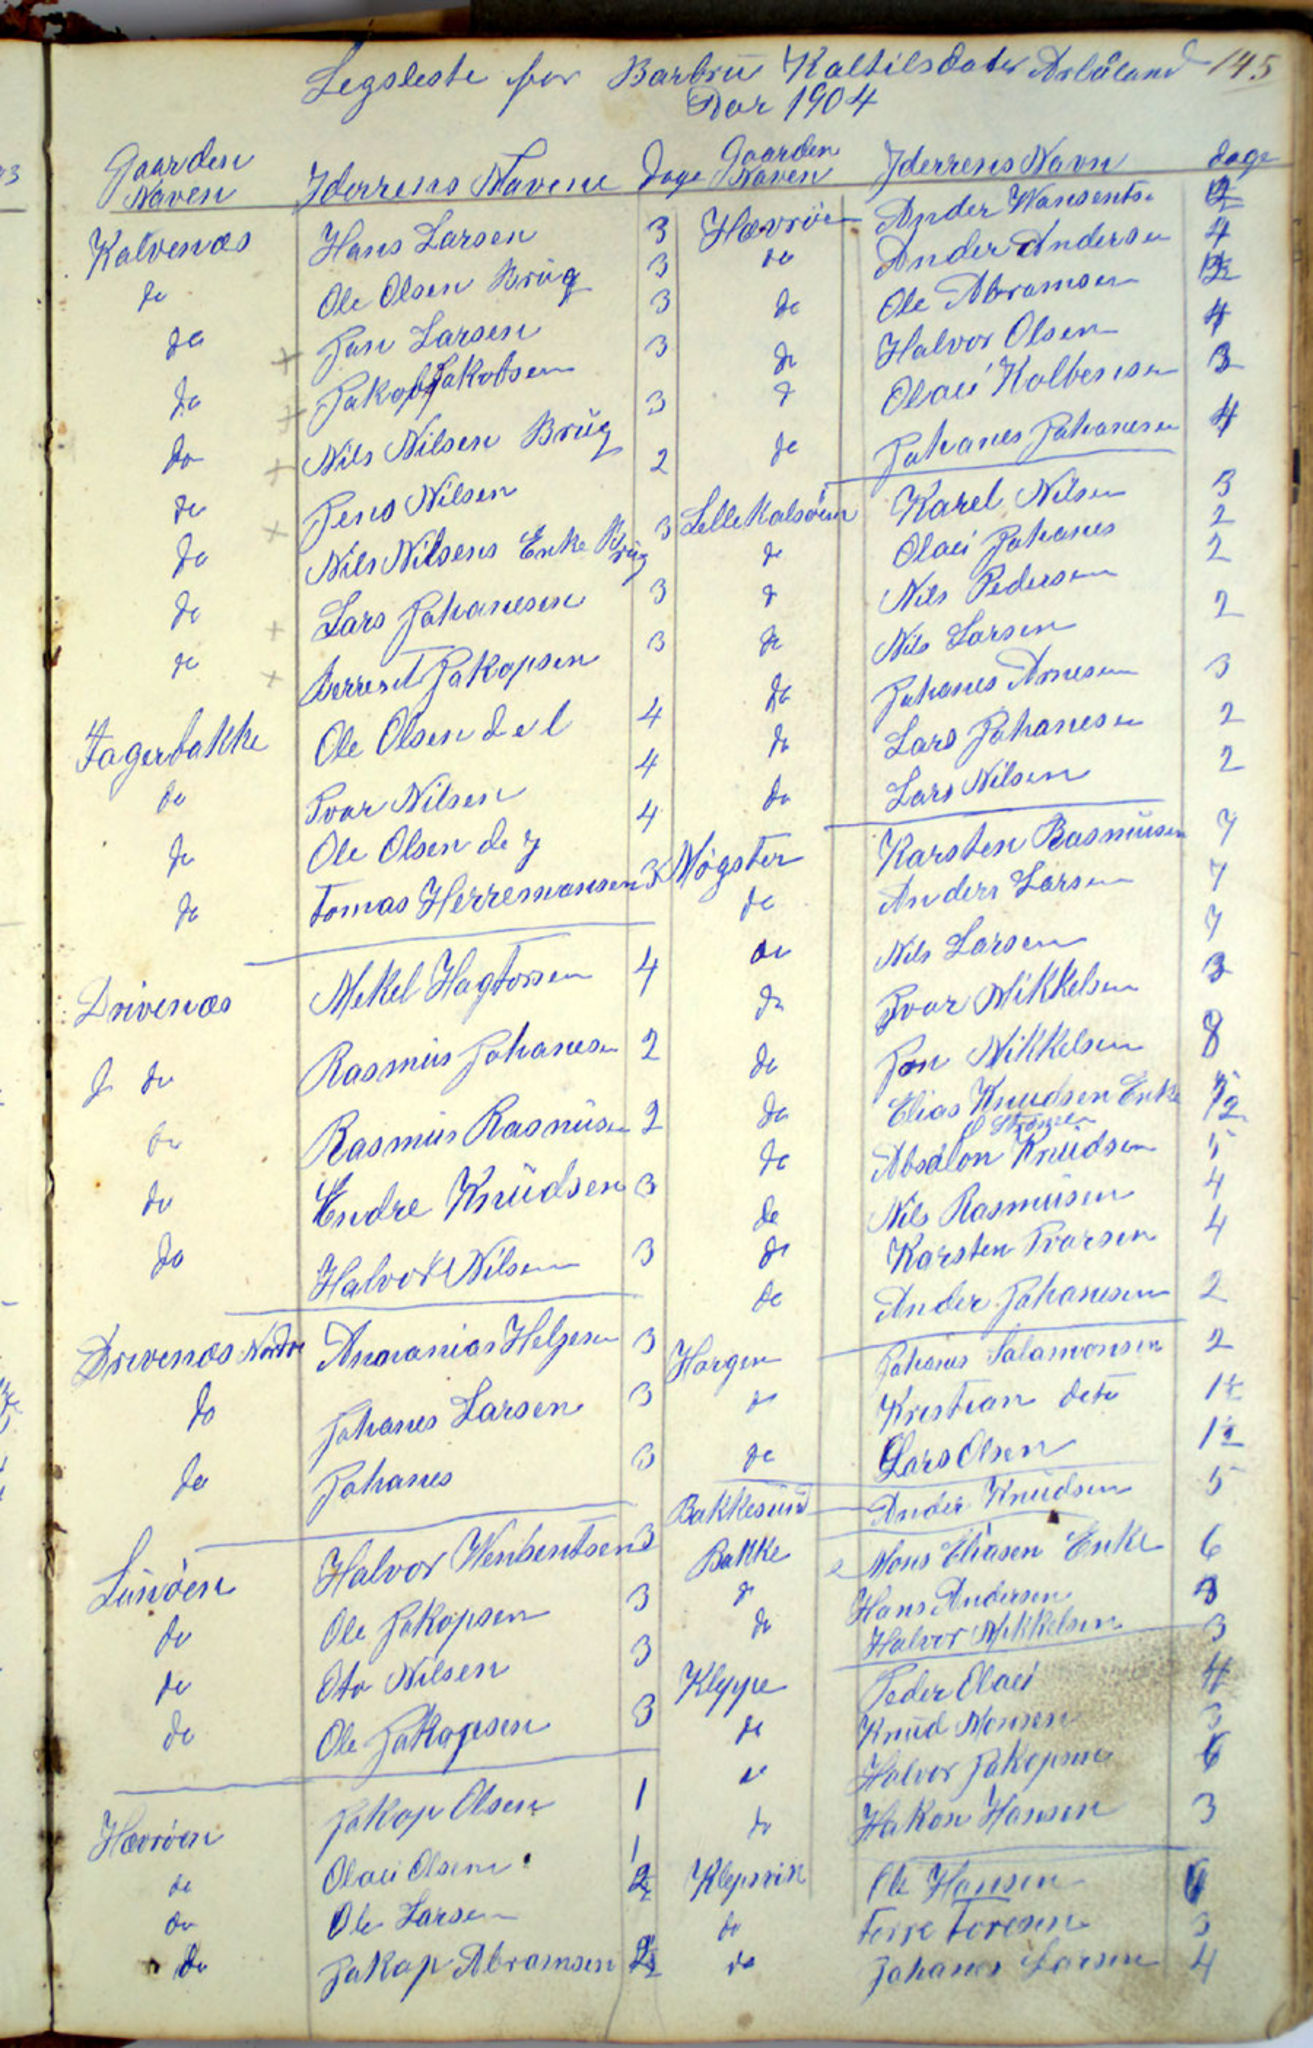 145
Legsleste for Barbru Kaltilsdater Arlåland
Aar 1904
Gaarden Naven Yderrens Navene Dage
Kalvenæs Hans Larsen 3
do Ole Olsen Brug 3
do Jan Larsen 3
do Jakob Jakobsen 3
do Nils Nilsen Brüg 3
do Jens Nilsen 2
do Nils Nilsens Enke Brüg 3
do Lars Johanesen 3
do Berrent Jakopsen 3
Fagerbakke Ole Olsen d e l 4
do Ivar Nilsen 4
do Ole Olsen de y 4
do Tomas Herremansen 3
Drivenæs Mekel Hagtorsen 4
do Rasmus Johanesen 2
do Rasmus Rasmüsen 2
do Endre Knüdsen 3
do Halvor Nilsen 3
Drevenæs Nordre Ananias Helgesen 3
do Johanes Larsen 3
do Johanes 3
Lünöen Halvor Wenbentsen 3
do Ole Jakopsen 3
do Oto Nilsen 3
do Ole Jakopsen 3
Hævröen Jakop Olsen 1
do Olaü Olsen 1
do Ole Larsen 2 1/2
do Jakop Abramsen 2 1/2
Gaarden Naven Yderrens Navn dage
Hævröe Ander Wansentse
do Ander Andersen 4
do Ole Abramsen
do Halvor Olsen 4
do Olaü Kolbensen 3
do Johanes Johanesen 4
Lelle Kalsöen Karel Nilsen 3
do Olaü Johanes 2
do Nils Pedersen 2
do Nils Larsen 2
do Johanes Arnesen 3
do Lars Johanesen 2
do Lars Nilsen 2
Mögster Karsten Rasmüsen 7
do Anders Larsen 7
do Nils Larsen 7
do Ivar Mikkelsen 3
do Jon Mikkelsen 8
do Elias Knudsen Enke
do Absalon Knüdsen 5
do Nils Rasmüsen 4
do Karsten Ivarsen 4
do Ander Johanesen 2
Horgen Johanes Salamonsen 2
do Kristian deto 1 1/2
do Lars Olsen 1 1/2
Bakkesund Ander Knüdsen 5
Bakke Mons Eliasen Enke 6
do Hans Andersen 3
do Halvor Mikkelsen 3
Kleppe Peder Olaü 4
do Knud Monsen 3
do Halvor Jakopsen 6
do Hakon Hansen 3
Klepsvik Ole Hansen 6
do Terje Toresen 3
do Johanes Larsen 4